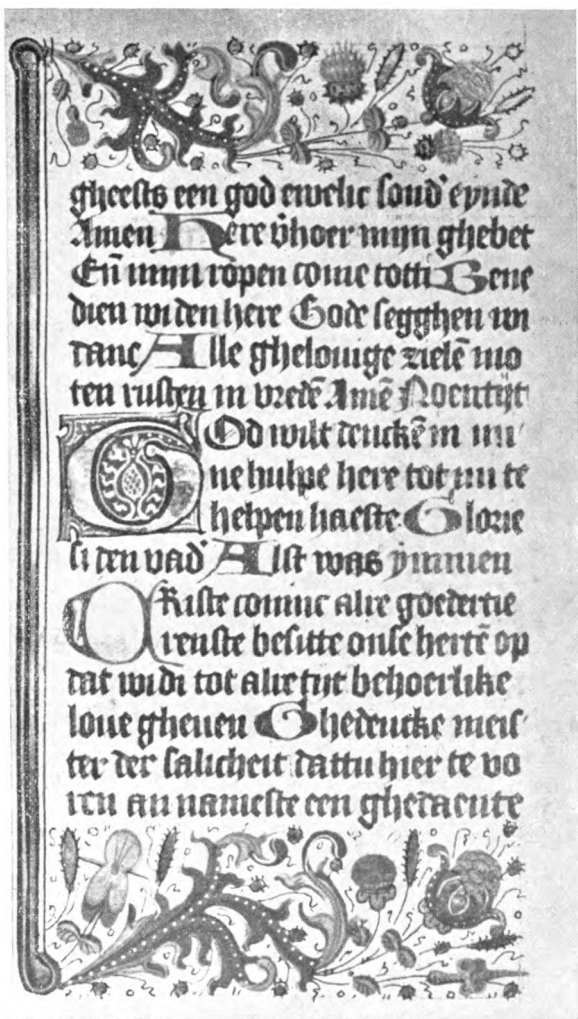 gheests een god ewelic sond' eynde
Amen Here v̄hoer mijn ghebet
Eñ mijn ropen come totti Bene
dien wi den here Gode segghen wi
danc Alle ghelouige zielē mo
ten rusten in vredē Amē Noentijt
GOd wilt dencken̄ in mi
ne hulpe here tot mi te
helpen haeste Glorie
si den vad' Alst was ymmen
CRiste comme alre goedertie
renste besitte onse hertē op
dat wi di tot alre tijt behoerlike
loue gheuen Ghedencke meis
ter der salicheit dattu hier te vo
ren an nameste een ghedaente